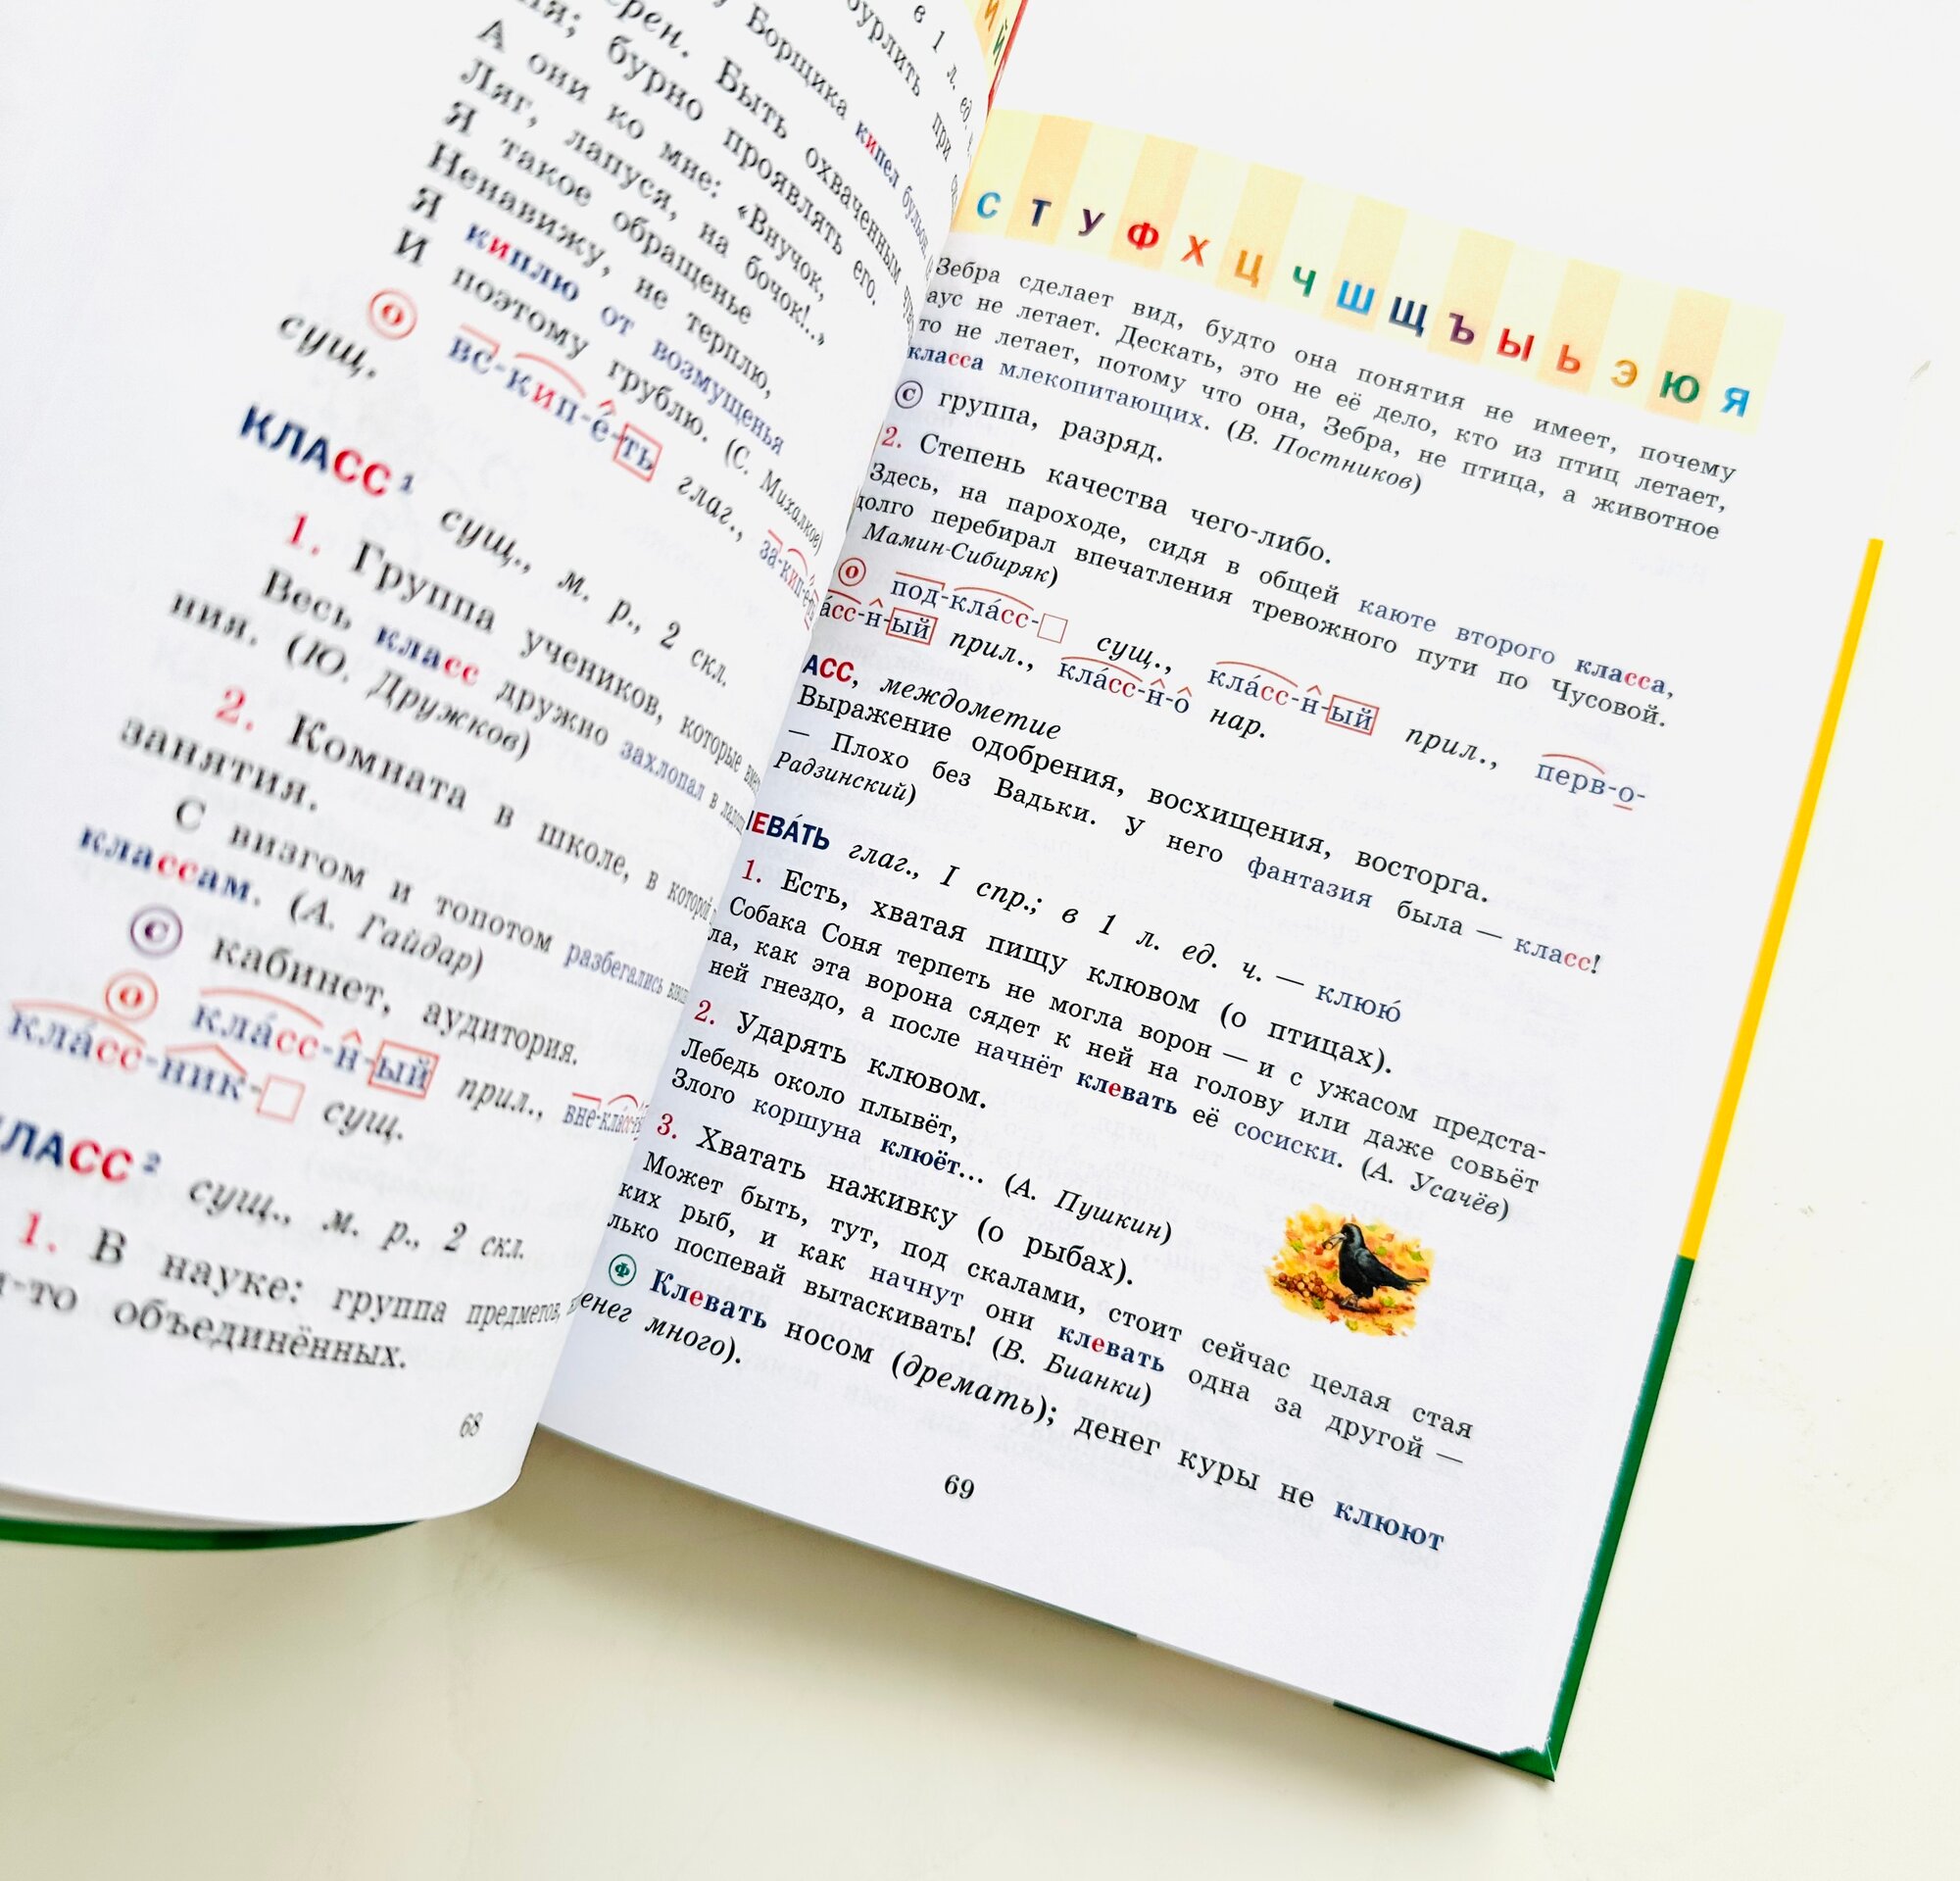 в 1 л. ед.
бурлить при
у Борщика кипел бульон.
Быть охваченным
бурно проявлять его.
А они ко мне: «Внучок,
Ляг, лапуся, на бочок!..»
Я такое обращенье
Ненавижу, не терплю,
Я киплю от возмущенья
И поэтому грублю. (С. Михалков)
О вс-кип-е́-ть глаг., за-кип-е́-
сущ.
КЛАСС 1 сущ., м. р., 2 скл.
1. Группа учеников, которые
Весь класс дружно захлопал в
ния. (Ю. Дружков)
2. Комната в школе, в которой
занятия.
С визгом и топотом разбегались
классам. (А. Гайдар)
С кабинет, аудитория.
О кла́сс-н-ый прил., вне-кла́сс-
кла́сс-ник- сущ.
ЛАСС 2 сущ., м. р., 2 скл.
1. В науке: группа предметов,
-то объединённых.
68
ИЙ
С Т У Ф Х Ц Ч Ш Щ Ъ Ы Ь Э Ю Я
Зебра сделает вид, будто она понятия не имеет, почему
аус не летает. Дескать, это не её дело, кто из птиц летает,
то не летает, потому что она, Зебра, не птица, а животное
класса млекопитающих. (В. Постников)
С группа, разряд.
2. Степень качества чего-либо.
Здесь, на пароходе, сидя в общей каюте второго класса,
долго перебирал впечатления тревожного пути по Чусовой.
Мамин-Сибиряк)
О под-кла́сс- сущ., кла́сс-н-ый прил., перв-о-
а́сс-н-ый прил., кла́сс-н-о нар.
АСС, междометие
Выражение одобрения, восхищения, восторга.
— Плохо без Вадьки. У него фантазия была — класс!
Радзинский)
ЕВА́ТЬ глаг., I спр.; в 1 л. ед. ч. — клюю́
1. Есть, хватая пищу клювом (о птицах).
Собака Соня терпеть не могла ворон — и с ужасом предста-
ла, как эта ворона сядет к ней на голову или даже совьёт
ней гнездо, а после начнёт клевать её сосиски. (А. Усачёв)
2. Ударять клювом.
Лебедь около плывёт,
Злого коршуна клюёт... (А. Пушкин)
3. Хватать наживку (о рыбах).
Может быть, тут, под скалами, стоит сейчас целая стая
ких рыб, и как начнут они клевать одна за другой —
лько поспевай вытаскивать! (В. Бианки)
Ф Клевать носом (дремать); денег куры не клюют
енег много).
69